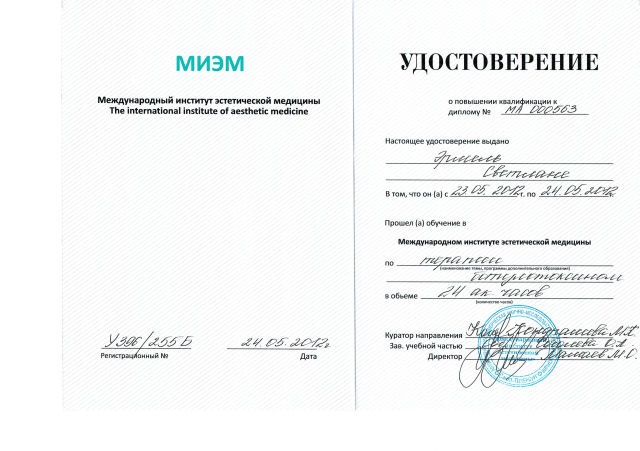 МИЭМ
Международный институт эстетической медицины
The international institute of aesthetic medicine
У396/255Б 24.05.2012г.
Регистрационный № Дата
УДОСТОВЕРЕНИЕ
о повышении квалификации к
диплому № МА 000563
Настоящее удостоверение выдано
Светлане
В том, что он (а) с 23.05.2012г. по 24.05.2012г.
Прошел (а) обучение в
Международном институте эстетической медицины
по терапии
(наименование темы, программы дополнительного образования)
ботулотоксином
в объеме 24 ак. часов
(количество часов)
Куратор направления
Зав. учебной частью
Директор